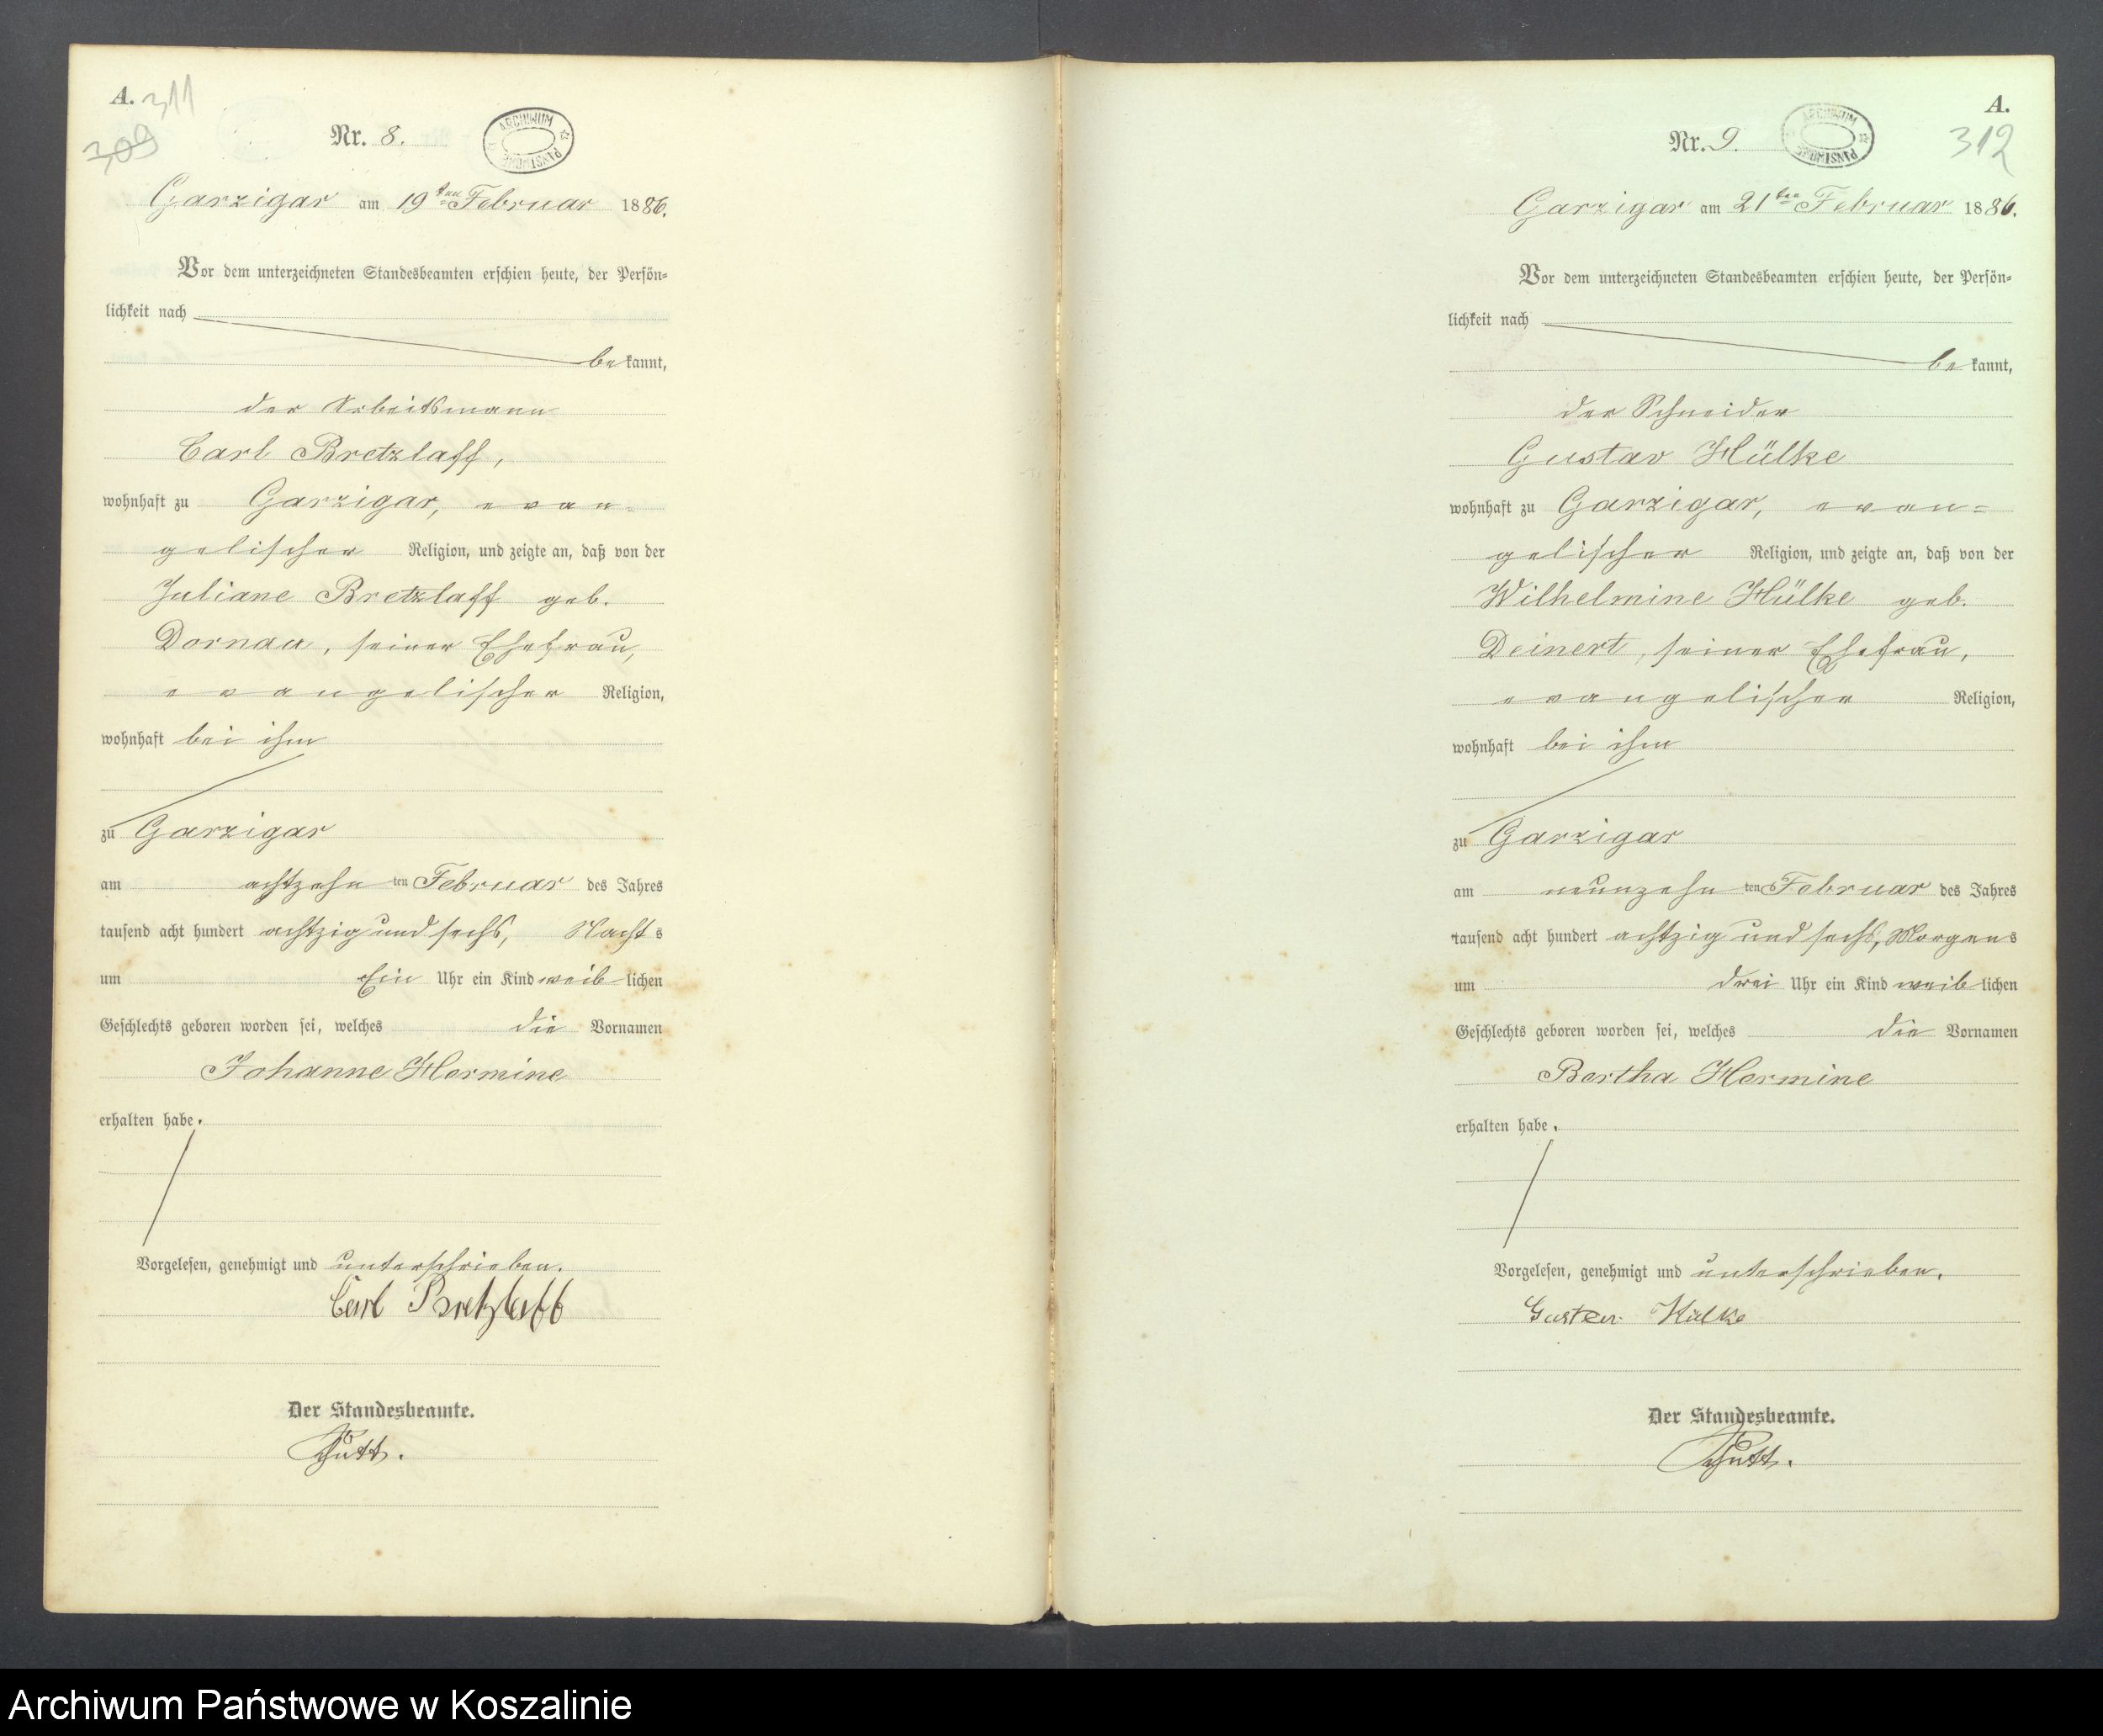 A. 311
309
Nr. 8.
ARCHIWUM PAŃSTWOWE
Garzigar am 19ten Februar 1886.
Vor dem unterzeichneten Standesbeamten erschien heute, der Persön-
lichkeit nach
be kannt,
der Arbeitsmann
Carl Bretzlaff,
wohnhaft zu Garzigar, evan-
gelischer Religion, und zeigte an, daß von der
Juliane Bretzlaff geb.
Dornau, seiner Ehefrau,
evangelischer Religion,
wohnhaft bei ihm
zu Garzigar
am achtzehn ten Februar des Jahres
tausend acht hundert achtzig und sechs, Nacht s
um Ein Uhr ein Kind weib lichen
Geschlechts geboren worden sei, welches die Vornamen
Johanne Hermine
erhalten habe.
Vorgelesen, genehmigt und unterschrieben.
Carl Bretzlaff
Der Standesbeamte.
A.
312
Nr. 9.
ARCHIWUM PAŃSTWOWE
Garzigar am 21ten Februar 1886.
Vor dem unterzeichneten Standesbeamten erschien heute, der Persön-
lichkeit nach
be kannt,
der Schneider
Gustav Hülke
wohnhaft zu Garzigar, evan=
gelischer Religion, und zeigte an, daß von der
Wilhelmine Hülke geb.
Deinert, seiner Ehefrau,
evangelischer Religion,
wohnhaft bei ihm
zu Garzigar
am neunzehn ten Februar des Jahres
tausend acht hundert achtzig und sechs, Morgen s
um drei Uhr ein Kind weib lichen
Geschlechts geboren worden sei, welches die Vornamen
Bertha Hermine
erhalten habe.
Vorgelesen, genehmigt und unterschrieben.
Gustav Hülke
Der Standesbeamte.
Archiwum Państwowe w Koszalinie